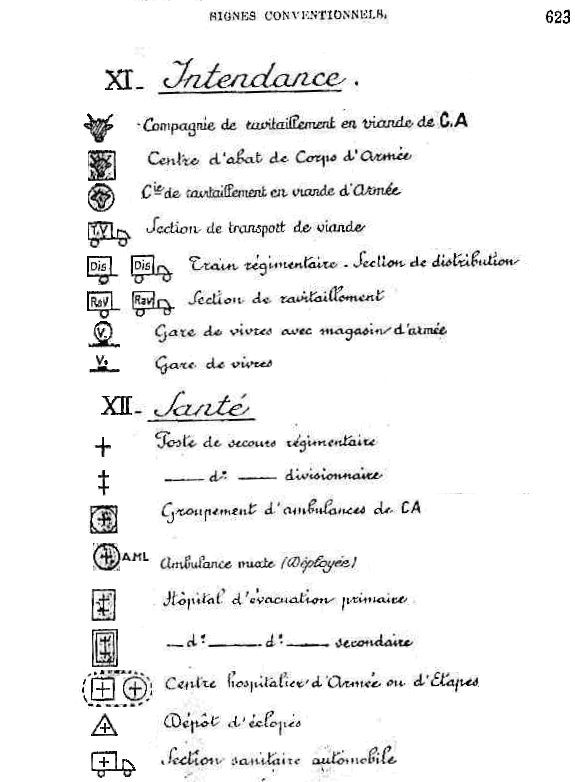 SIGNES CONVENTIONNELS. 623
XI_ Intendance.
Compagnie de ravitaillement en viande de C.A
Centre d'abat de Corps d'Armée
Cie de ravitaillement en viande d'Armée
T.V Section de transport de viande
Dis Dis Train régimentaire - Section de distribution
RaV Rav Section de ravitaillement
V. Gare de vivres avec magasin d'armée
V. Gare de vivres
XII_ Santé
Poste de secours régimentaire
—— d° —— divisionnaire
Groupement d'ambulances de CA
A.ML Ambulance mixte (Déployée)
Hôpital d'évacuation primaire
— d° —— d° —— secondaire
Centre hospitalier d'Armée ou d'Etapes
Dépôt d'éclopés
Section sanitaire automobile